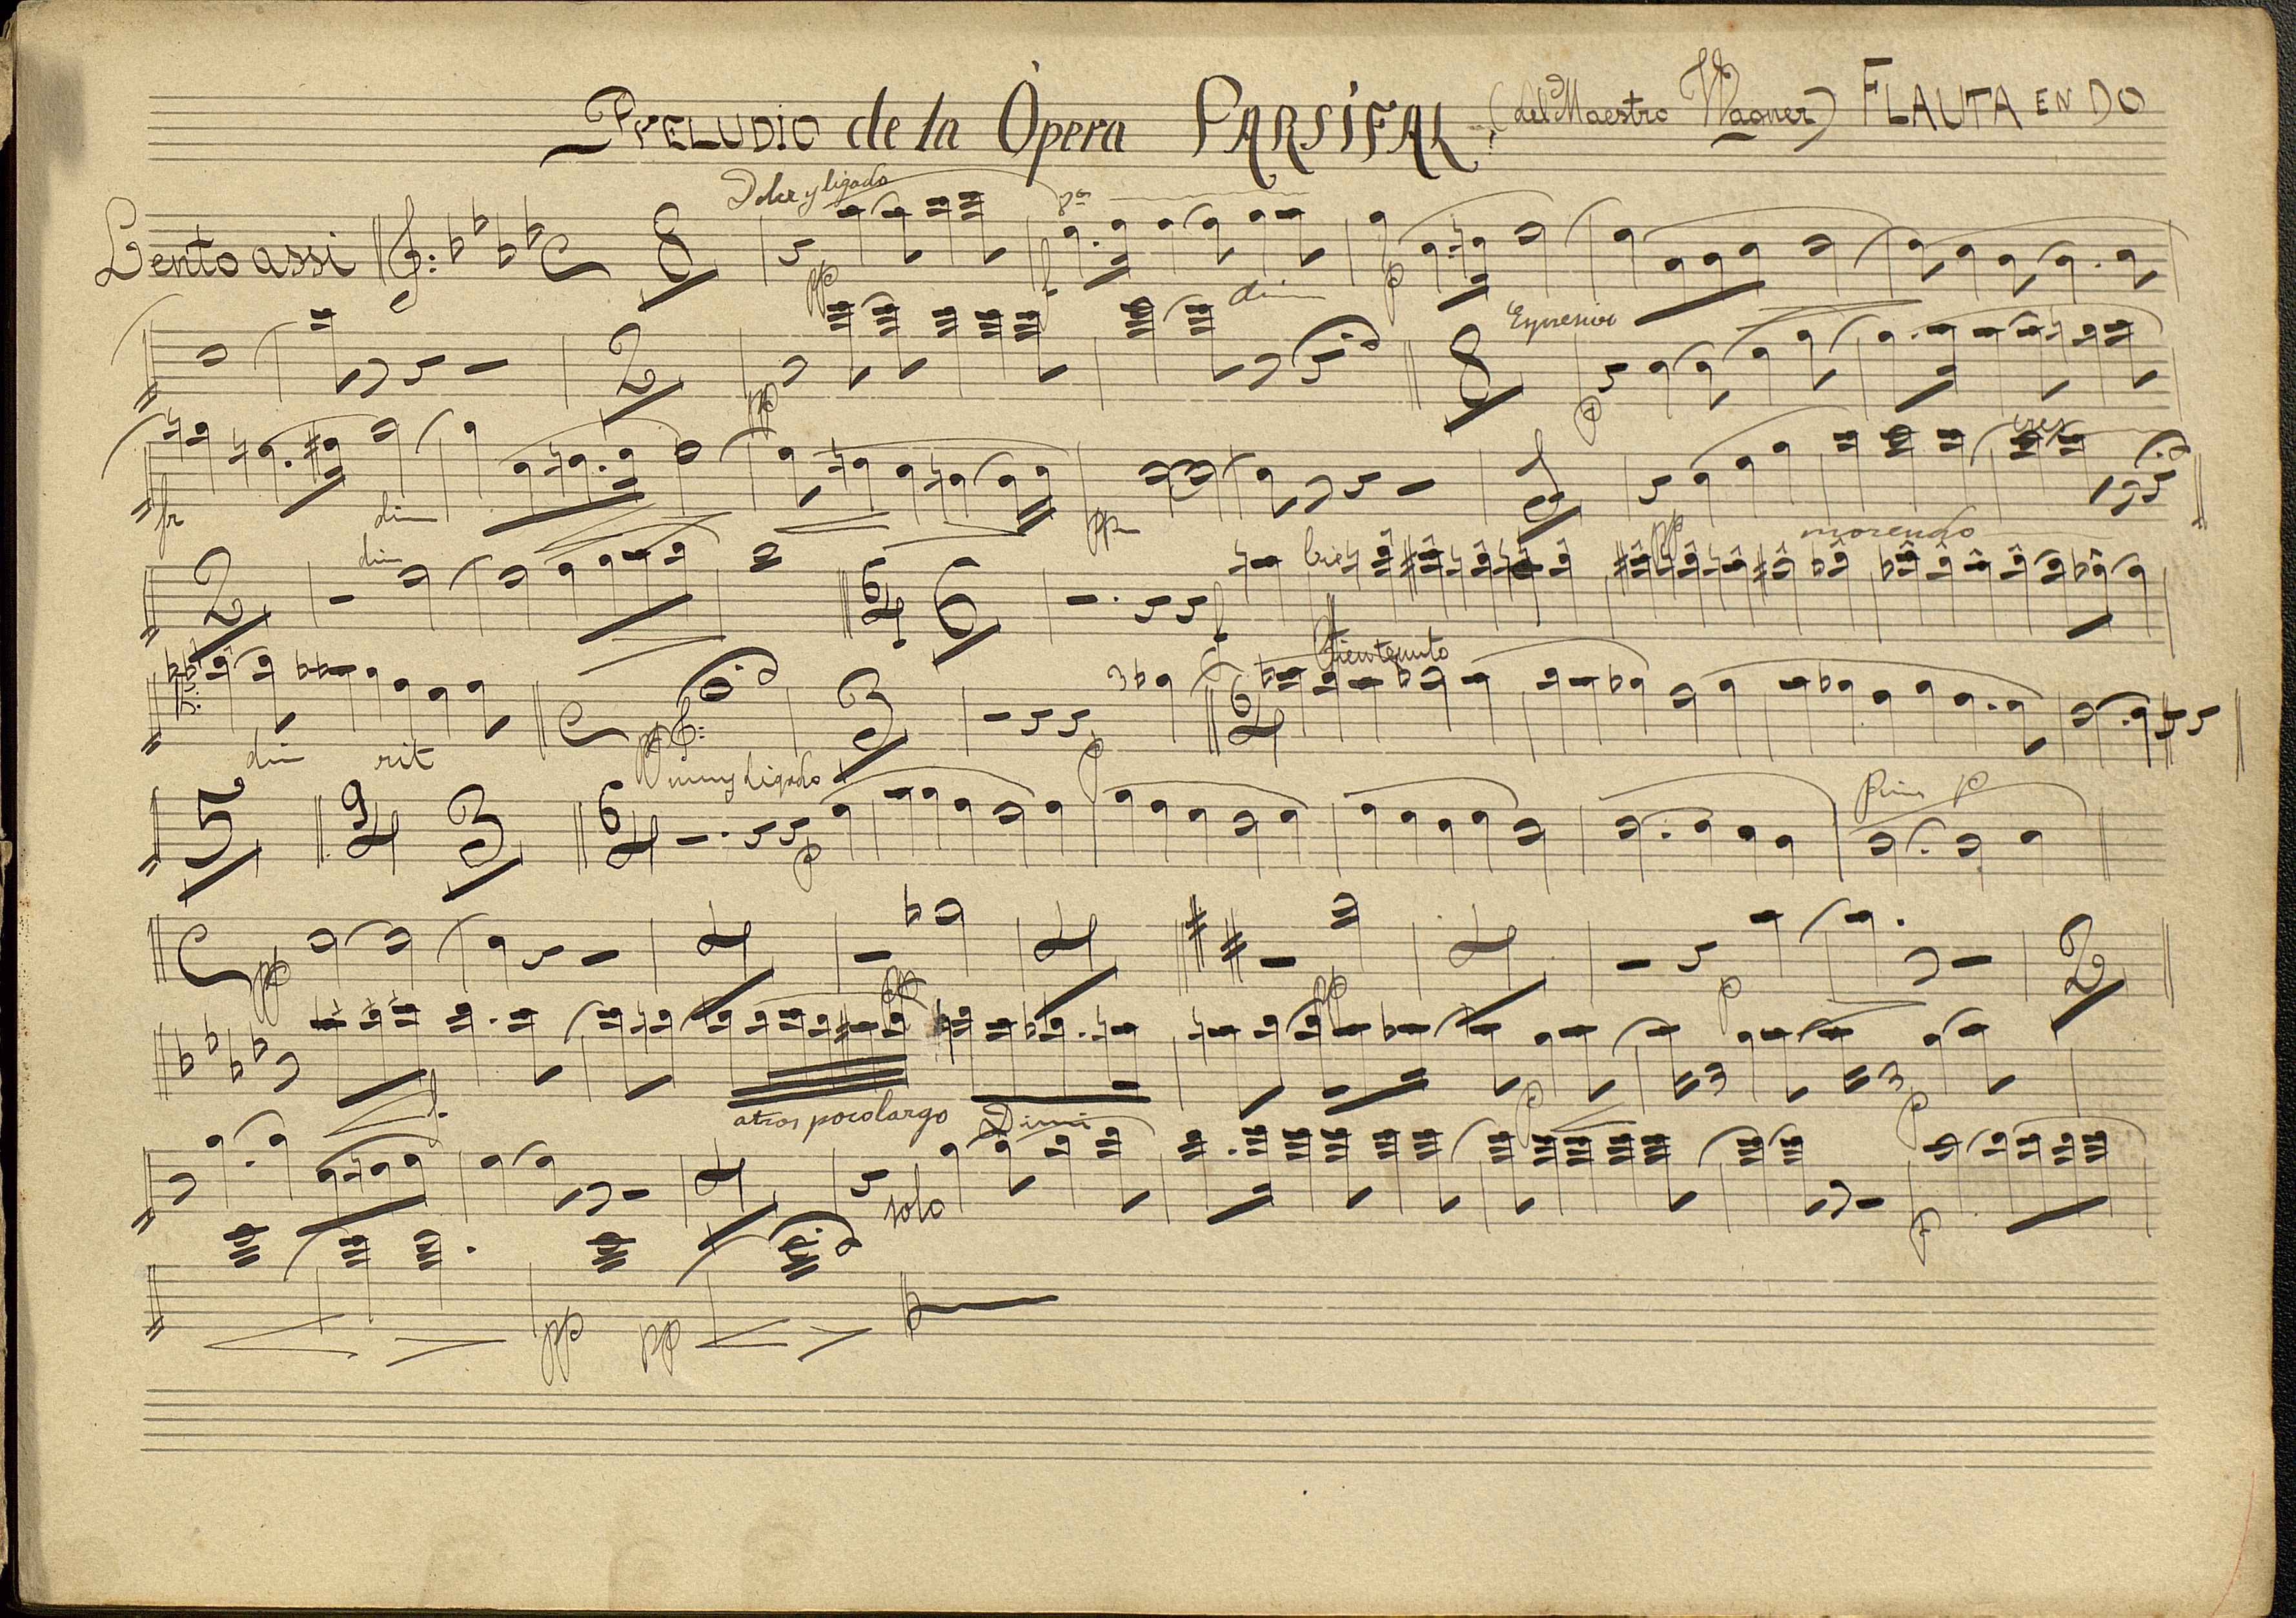 PRELUDIO de la Ópera PARSIFAL (del Maestro Wagner) FLAUTA EN DO
Dolce y ligado 8ª
Lento assi C 8
pp f p
dim
Expresivo
2 8
pp p
cres
fr dim pp
dim pp morendo
2 6 6
f
Bien tenuto
C 3 3 6
dim rit pp p
muy ligado
5 9 3 6
p
Piu p
C 2
pp pp pp p
f
atras poco largo Dimi p p
solo
p
pp pp